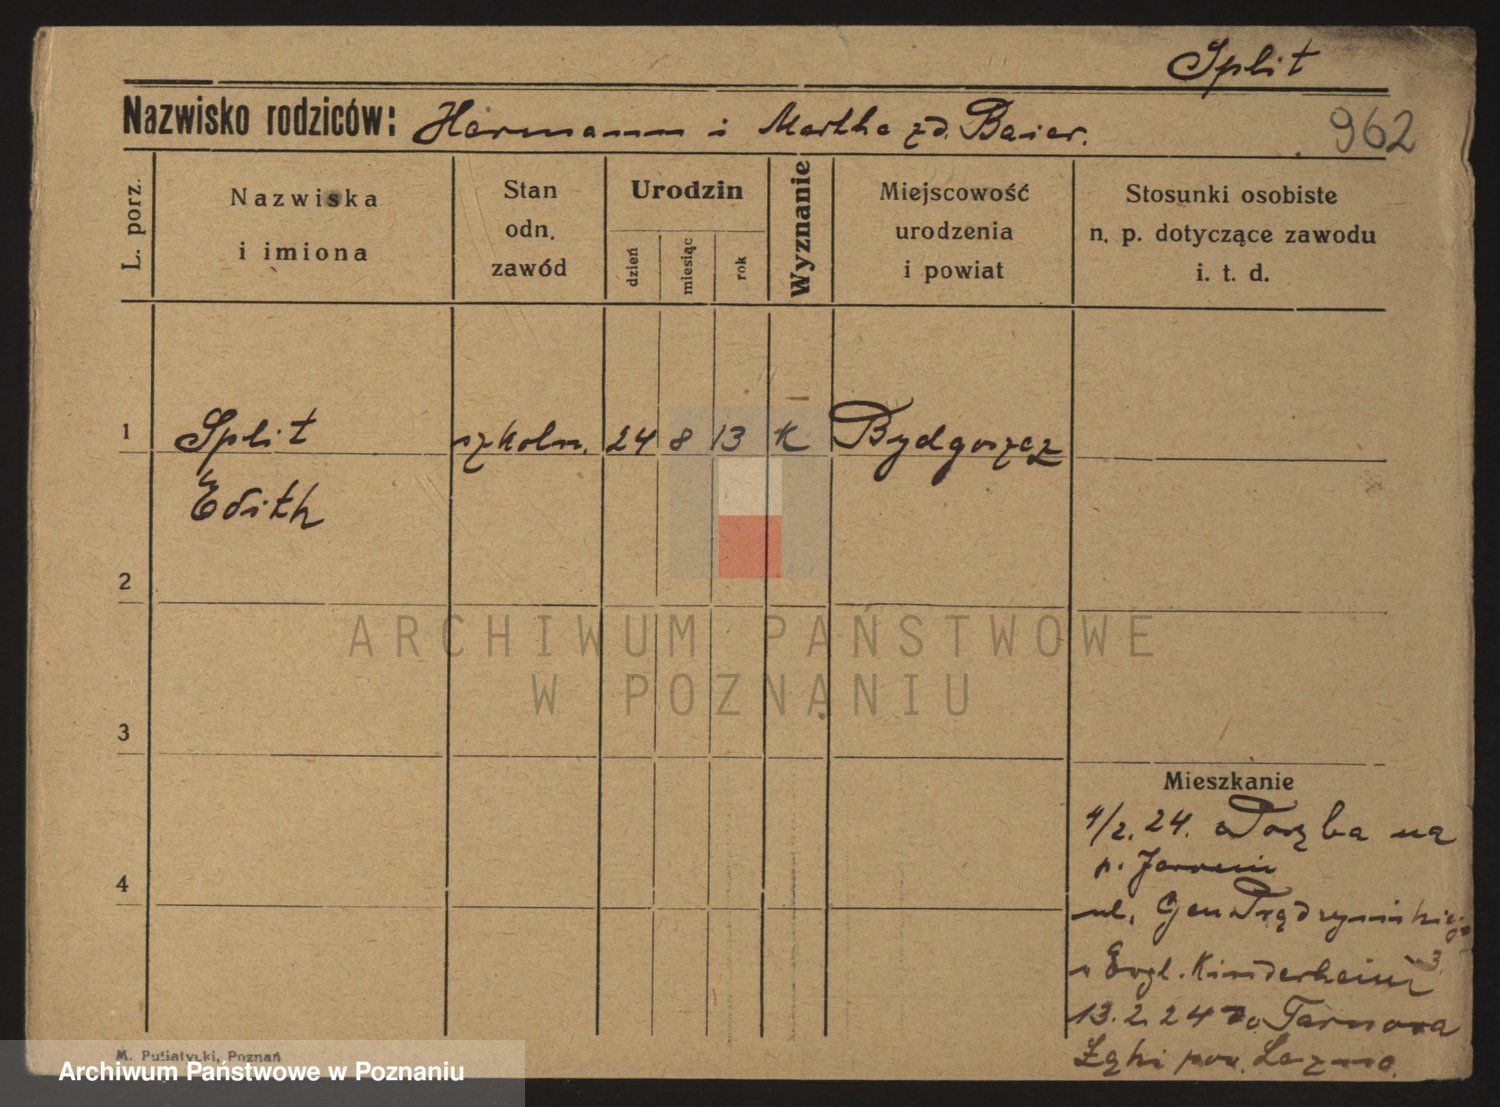 Split
Nazwisko rodziców: Hermann i Martha zd. Baier.
962
L. porz.
Nazwiska
i imiona
Stan
odn.
zawód
Urodzin
dzień
miesiąc
rok
Wyznanie
Miejscowość
urodzenia
i powiat
Stosunki osobiste
n. p. dotyczące zawodu
i. t. d.
1 Split szkoln. 24 8 13 K Bydgoszcz
Edith
2
ARCHIWUM PAŃSTWOWE
W POZNANIU
3
Mieszkanie
4/2. 24. na
p.
4
ul. Gen
Evgl. Kinderheim
13. 2. 24 Tarnowa
Łąki pow.
M. Putiatycki, Poznań
Archiwum Państwowe w Poznaniu